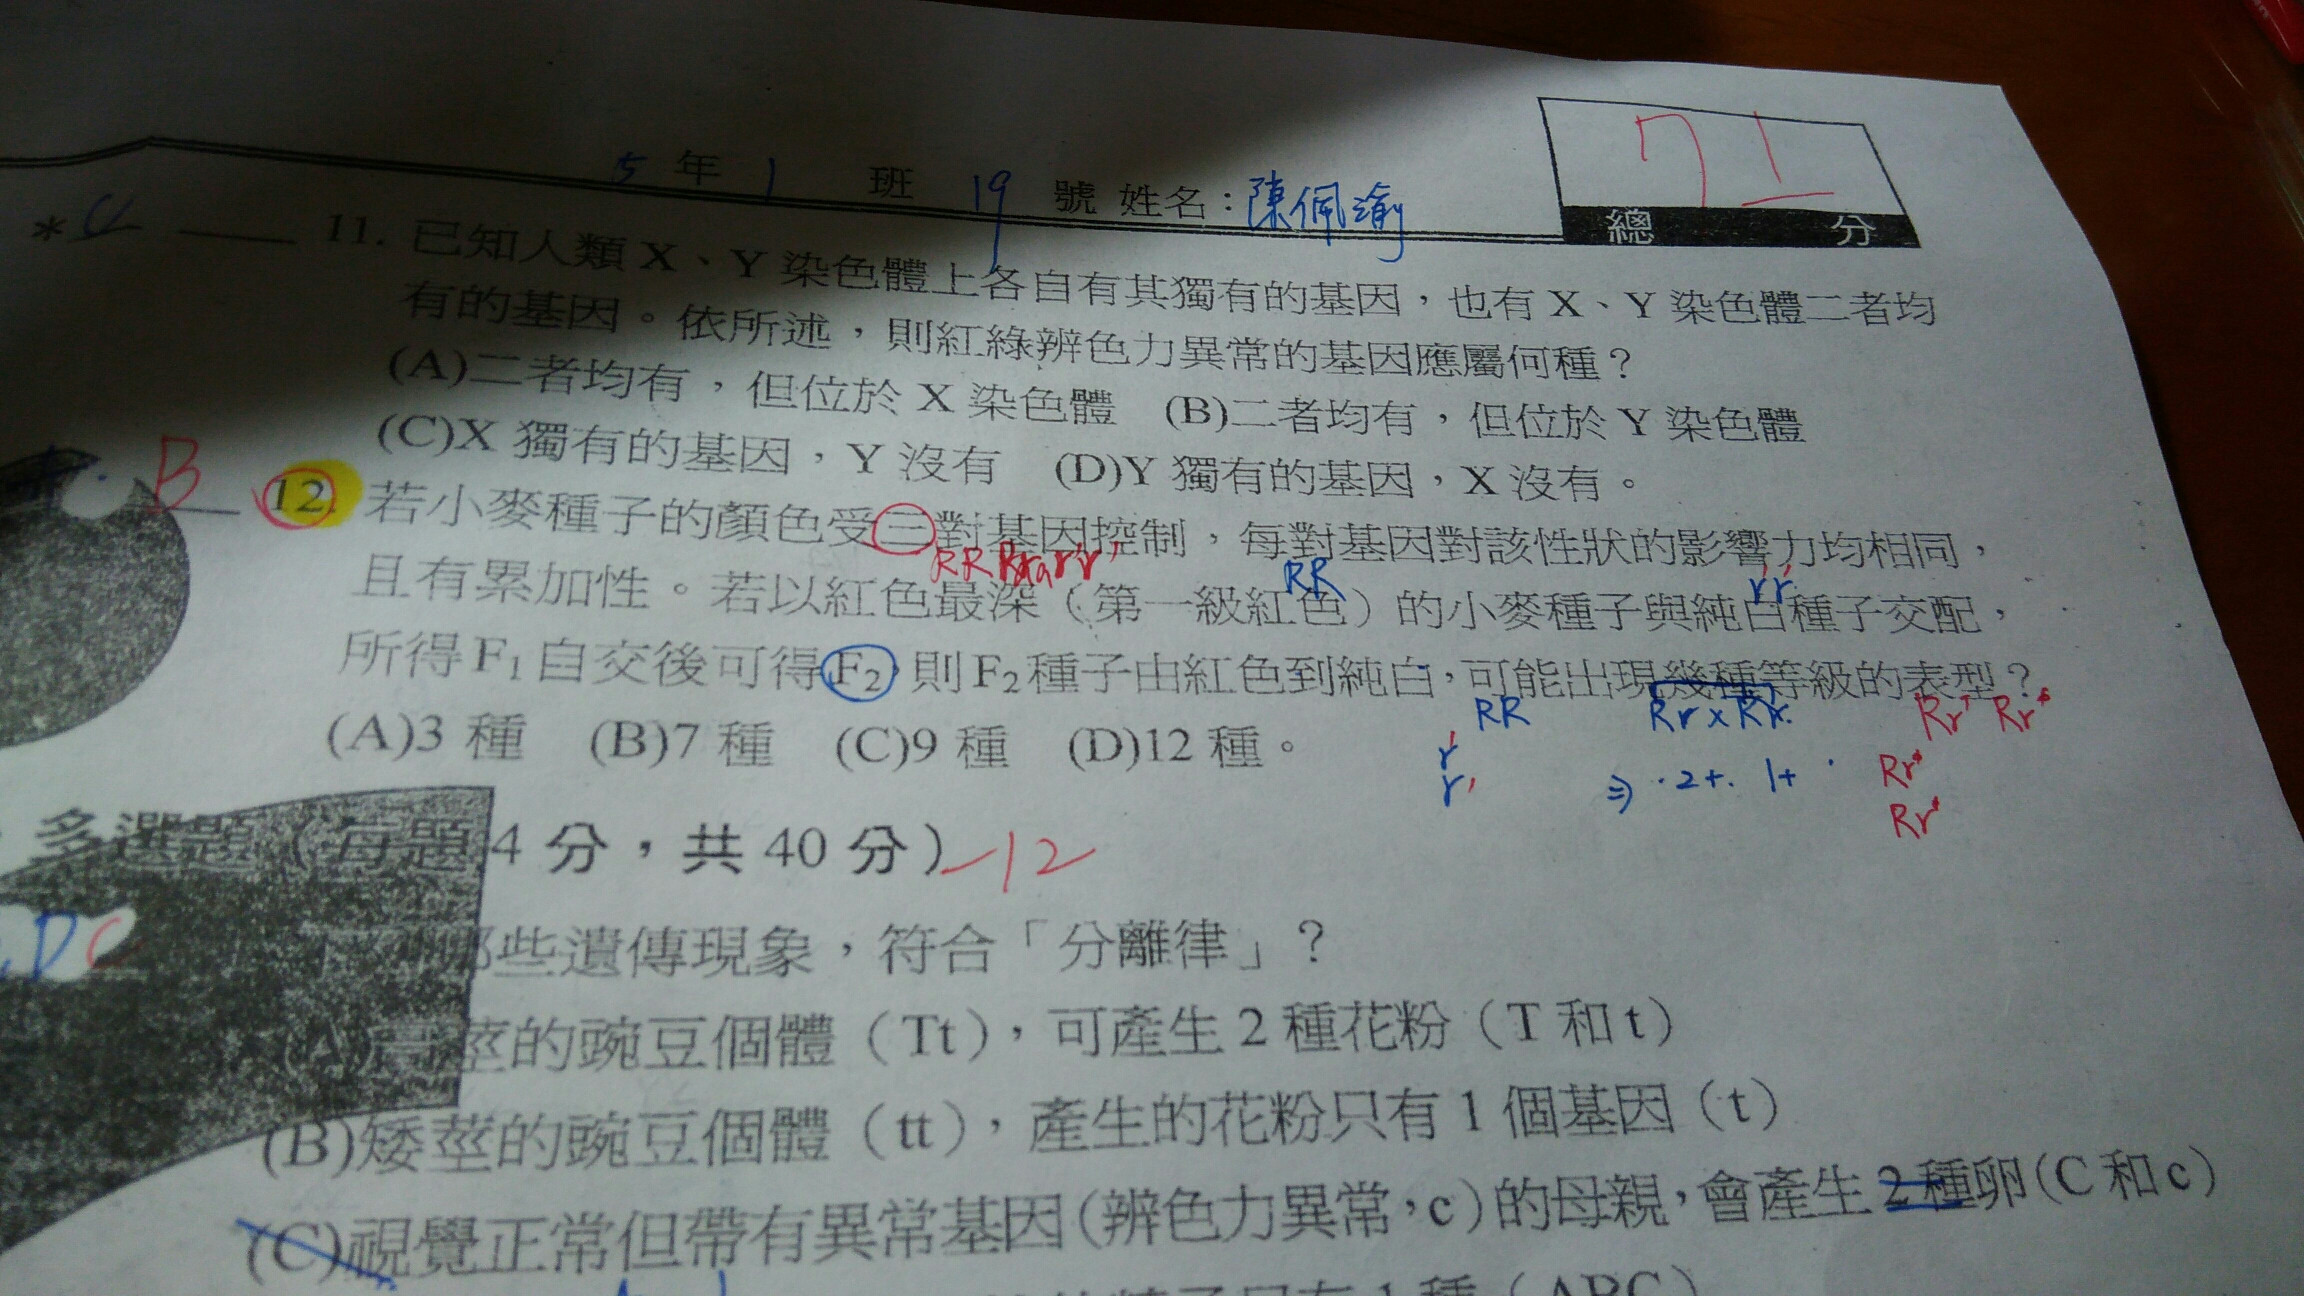 5 年 1 班 19 號 姓名：陳佩渝
71
總分
* C 11. 已知人類 X、Y 染色體上各自有其獨有的基因，也有 X、Y 染色體二者均
有的基因。依所述，則紅綠辨色力異常的基因應屬何種？
(A)二者均有，但位於 X 染色體 (B)二者均有，但位於 Y 染色體
(C)X 獨有的基因，Y 沒有 (D)Y 獨有的基因，X 沒有。
B 12. 若小麥種子的顏色受三對基因控制，每對基因對該性狀的影響力均相同，
RR
RR
r'r'
且有累加性。若以紅色最深（第一級紅色）的小麥種子與純白種子交配，
所得 F₁ 自交後可得 F₂，則 F₂ 種子由紅色到純白，可能出現幾種等級的表型？
(A)3 種 (B)7 種 (C)9 種 (D)12 種。
RR
r'
r'
Rr x Rr
⇒ 2+ 1+
Rr' Rr'
Rr'
Rr'
多選題（每題 4 分，共 40 分） -12
D C
些遺傳現象，符合「分離律」？
(A)高莖的豌豆個體（Tt），可產生 2 種花粉（T 和 t）
(B)矮莖的豌豆個體（tt），產生的花粉只有 1 個基因（t）
(C)視覺正常但帶有異常基因(辨色力異常，c)的母親，會產生 2 種卵(C 和 c)
只有 1 種（ABC）